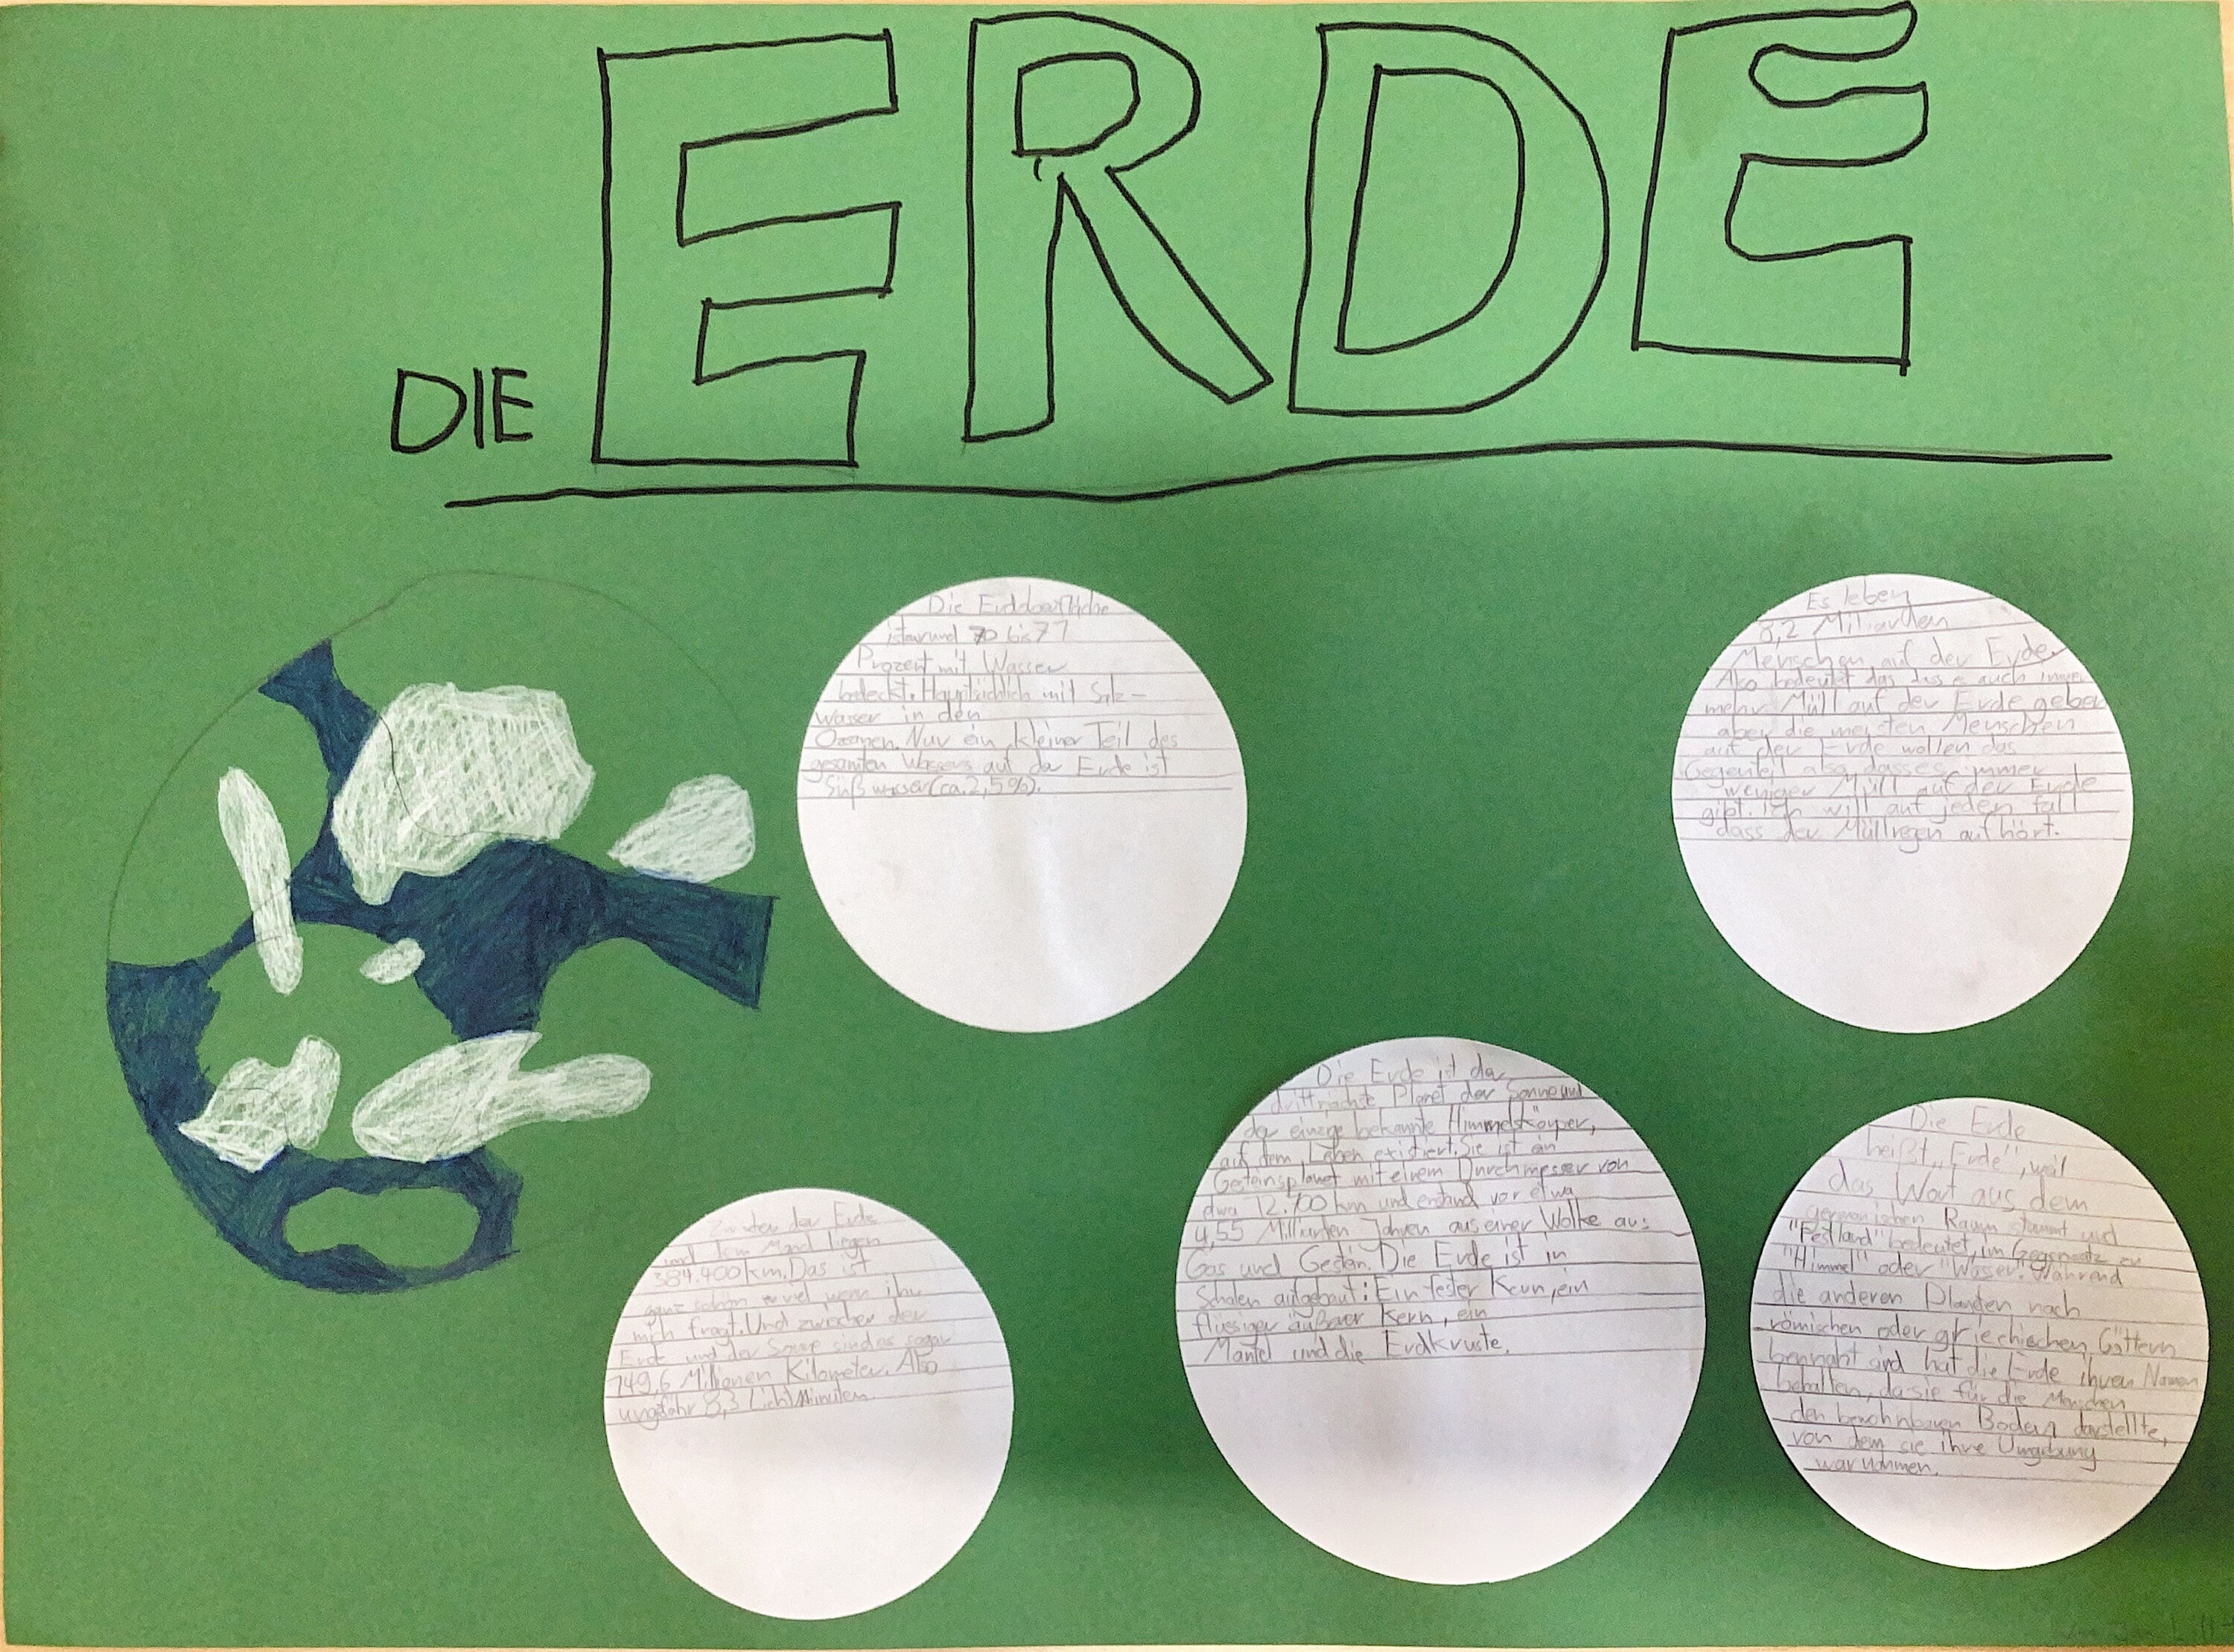 DIE ERDE
Die Erdoberfläche
ist rund 70 bis 71
Prozent mit Wasser
bedeckt. Hauptsächlich mit Salz-
wasser in den
Ozeanen. Nur ein kleiner Teil des
gesamten Wassers auf der Erde ist
Süßwasser (ca. 2,5%).
Es leben
8,2 Miliarden
Menschen auf der Erde.
Also bedeutet das dass es auch immer
mehr Müll auf der Erde geben
aber die meisten Menschen
auf der Erde wollen das
Gegenteil also dass es immer
weniger Müll auf der Erde
gibt. Ich will auf jeden fall
dass der Müllregen aufhört.
Zwischen der Erde
und dem Mond liegen
384.400 km. Das ist
ganz schön viel wenn ihr
mich fragt. Und zwischen der
Erde und der Sonne sind es sogar
149,6 Millionen Kilometer. Also
ungefähr 8,3 Lichtminuten.
Die Erde ist der
drittnächste Planet der Sonne und
der einzige bekannte Himmelskörper,
auf dem Leben existiert. Sie ist ein
Gesteinsplanet mit einem Durchmesser von
etwa 12.700 km und entstand vor etwa
4,55 Milliarden Jahren aus einer Wolke aus
Gas und Gestein. Die Erde ist in
Schalen aufgebaut: Ein fester Kern, ein
flüssiger äußerer Kern, ein
Mantel und die Erdkruste.
Die Erde
heißt „Erde", weil
das Wort aus dem
germanischen Raum stammt und
"Festland" bedeutet, im Gegensatz zu
"Himmel" oder "Wasser". Während
die anderen Planeten nach
römischen oder griechischen Göttern
bennant sind hat die Erde ihren Namen
behalten, da sie für die Menschen
den bewohnbaren Boden darstellte,
von dem sie ihre Umgebung
warnahmen.